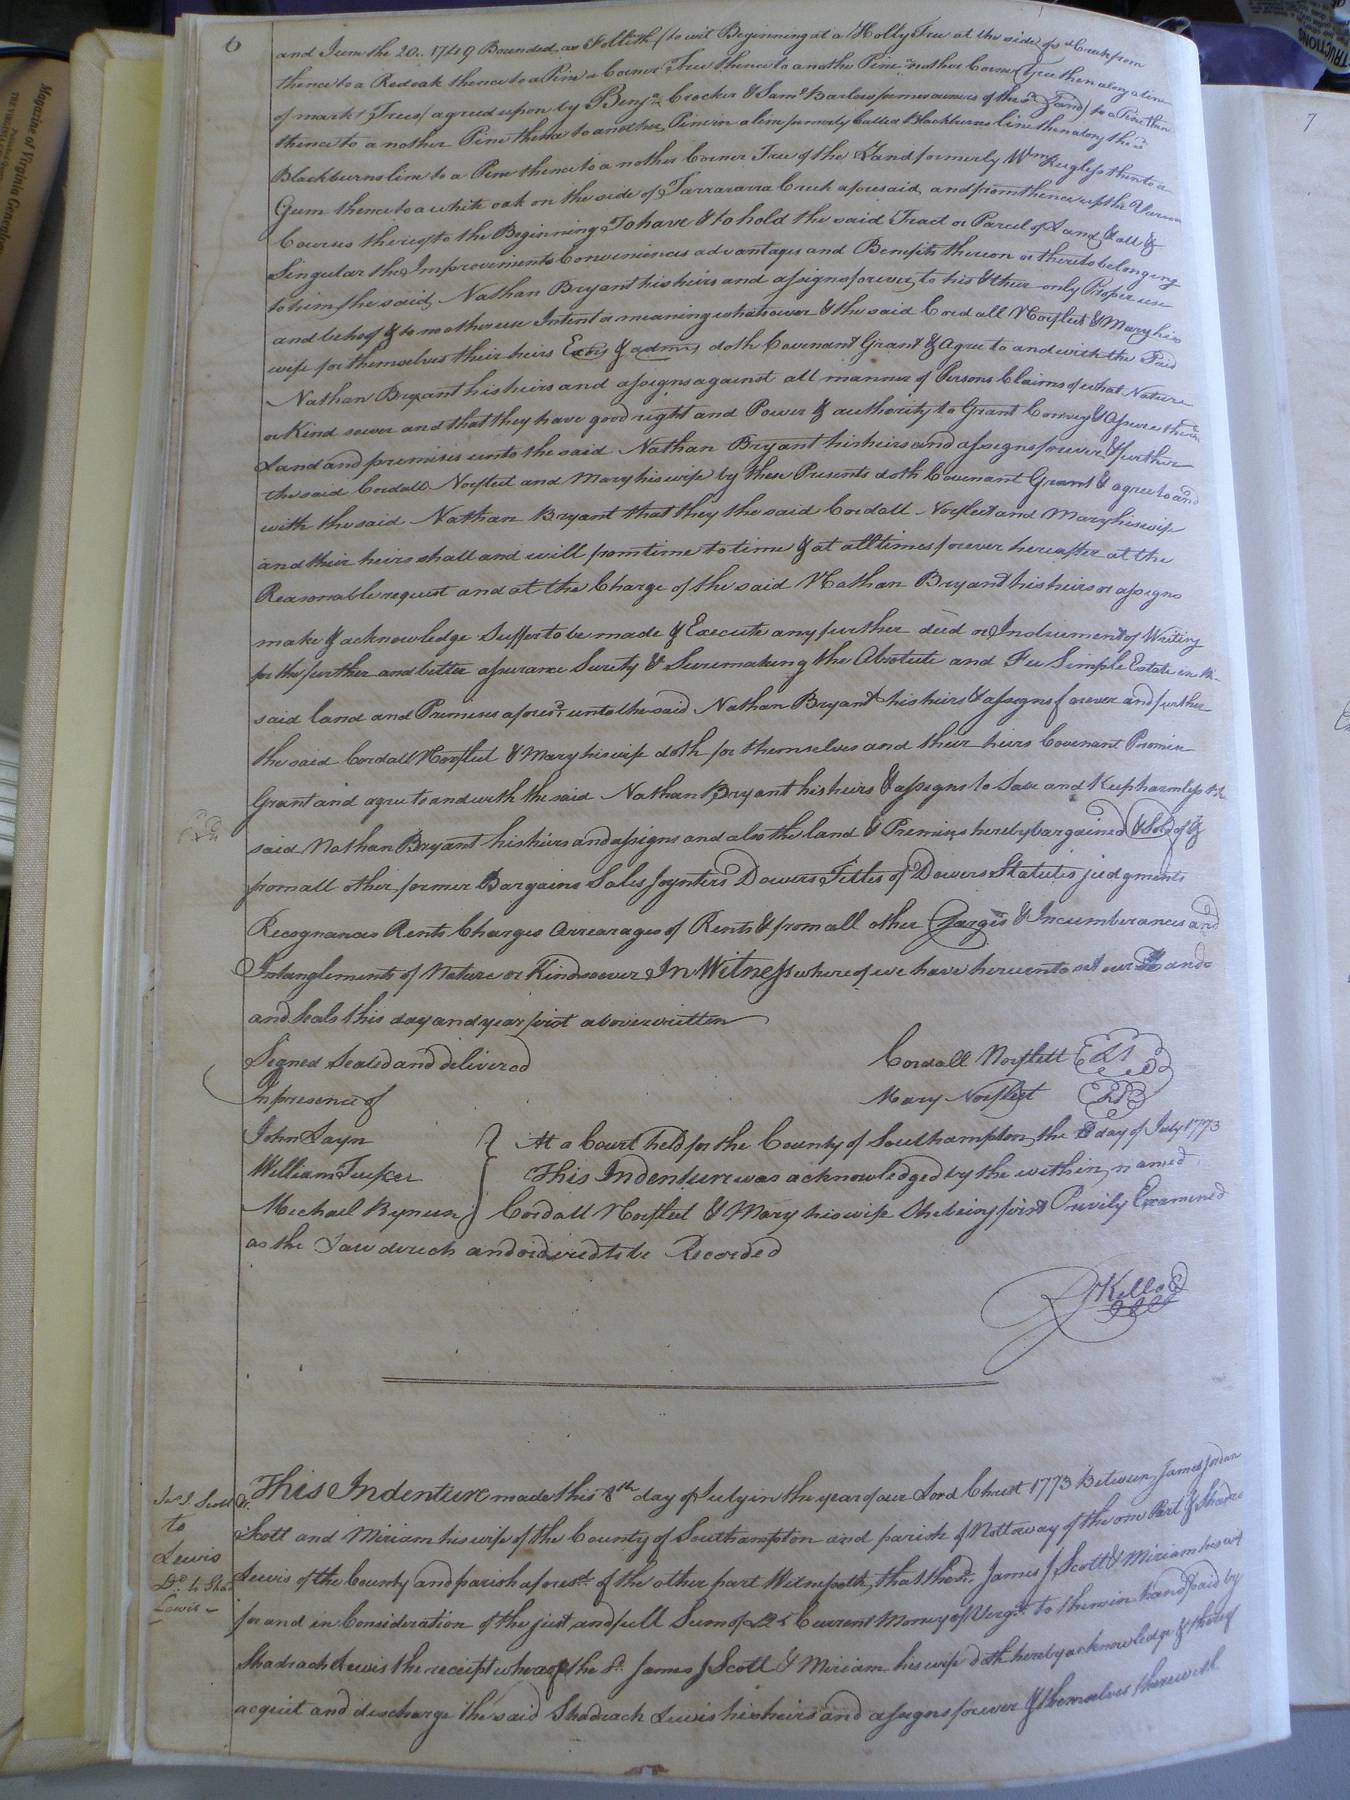 6
and June the 20.. 1749 Bounded as Followth (to wit Beginning at a Holly Tree at the side of a Creek from
thence to a Red oak thence to a Pine a Corner Tree thence to another Pine another Corner Tree then along a line
of markt Trees agreed upon by Benjn. Crocker & Saml. Barlow former owners of the sd. Land) to a Pine then
thence to a nother Pine thence to another Pine in a line formerly Called Blackburns line then along the sd.
Blackburns line to a Pine thence to a nother Corner Tree of the Land formerly Wm. thento a
Gum thence to a white oak on the side of Tarrararra Creek aforesaid and from thence up the Various
Courses thereof to the Beginning To have & to hold the said Tract or Parcel of Land & all &
Singular the Improvements Conveniences advantages and Benefits thereon or thereto belonging
to him the said Nathan Bryant his heirs and assigns forever to his & their only Proper use
and behoof & to no other use Intent or meaning whatsoever & the said Cordall Norfleet & Mary his
wife for themselves their heirs Exrs & admrs doth Covenant Grant & Agree to and with the Said
Nathan Bryant his heirs and assigns against all manner of Persons Claims of what Nature
or Kind soever and that they have good right and Power & authority to Grant Convey & Assure the
Land and premises unto the said Nathan Bryant his heirs and assigns forever & further
the said Cordall Norfleet and Mary his wife by these Presents doth Covenant Grant & agree to and
with the said Nathan Bryant that they the said Cordall Norfleet and Mary his wife
and their heirs shall and will from time to time & at all times forever hereafter at the
Reasonable request and at the Charge of the said Nathan Bryant his heirs or assigns
make & acknowledge Suffer to be made & Execute any further deed or Indrument of Writing
for the further and better assurance Surety & Suremaking the Absolute and Fee Simple Estate in the
said land and Premises aforesd. unto the said Nathan Bryant his heirs & assigns forever and further
the said Cordall Norfleet & Mary his wife doth for themselves and their heirs Covenant Promise
Grant and agree to and with the said Nathan Bryant his heirs & assigns to Save and Keep harmless the
said Nathan Bryant his heirs and assigns and also the land & Premises hereby bargained & Sold of &
from all other former Bargains Sales Joynters Dowers Titles of Dowers Statutes judgments
Recognances Rents Charges Arrearages of Rents & from all other Charges & Incumberances and
Intanglements of Nature or Kind soever In Witness whereof we have hereunto set our Hands
and Seals this day and year first above written
Signed Sealed and delivered Cordall Norflett LS
In presence of Mary Norfleet LS
John Sayn At a Court held for the County of Southampton the 8 day of July 1773
William Tucker This Indenture was acknowledged by the within named
Michael Bynum Cordall Norfleet & Mary his wife She being first Privily Examined
as the Law direch and ordered to be Recorded
R Kello
This Indenture made this 8th day of July in the year of our Lord Christ 1773 Between James Jordan
Jas. J. Scott &c.
to
Lewis
Do. to Sha.
Lewis
Scott and Miriam his wife of the County of Southampton and parish of Nottoway of the one Part & Shadrc
Lewis of the County and parish aforesd. of the other part Witnesseth that the sd. James J Scott & Miriam his wife
for and in Consideration of the just and full Sum of Current Money of Virga. to them in hand paid by
Shadrach Lewis the receipt whereof the Sd. James J Scott & Miriam his wife doth hereby acknowledge & thereof
acquit and discharge the said Shadrach Lewis his heirs and assigns forever & themselves therewith
7
Magazine of Virginia Genealogy